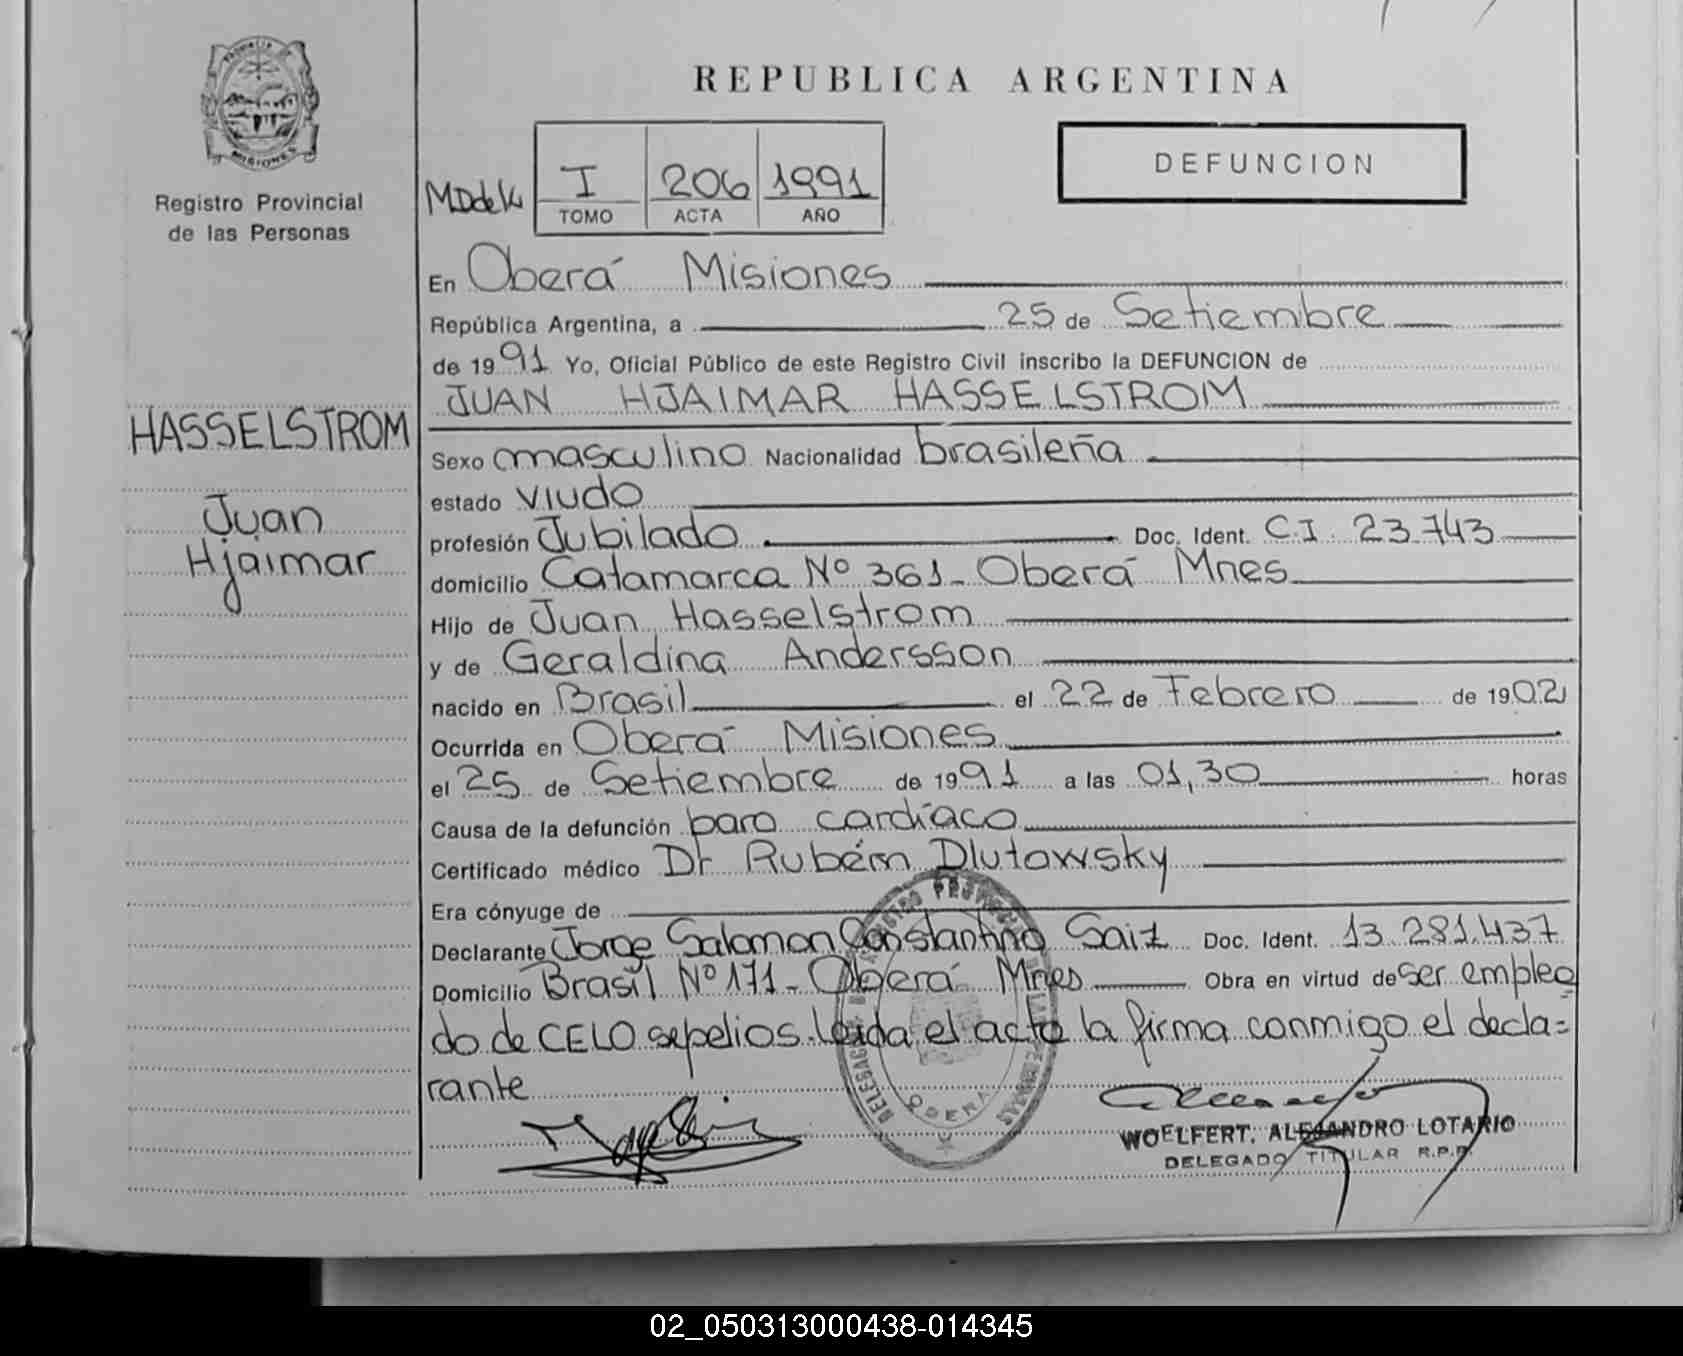 REPUBLICA ARGENTINA
PROVINCIA DE
MISIONES
Registro Provincial
de las Personas
DEFUNCION
I 206 1991
TOMO ACTA AÑO
En Oberá Misiones
República Argentina, a 25 de Setiembre
de 1991 Yo, Oficial Público de este Registro Civil inscribo la DEFUNCION de
JUAN HJAIMAR HASSELSTROM
HASSELSTROM
Juan
Hjaimar
Sexo masculino Nacionalidad brasileña
estado viudo
profesión Jubilado Doc. Ident. C.I. 23.743
domicilio Catamarca Nº 361 - Oberá Mnes
Hijo de Juan Hasselstrom
y de Geraldina Andersson
nacido en Brasil el 22 de Febrero de 1902
Ocurrida en Oberá Misiones
el 25 de Setiembre de 1991 a las 01,30 horas
Causa de la defunción paro cardíaco
Certificado médico Dr Rubém Dlutowsky
Era cónyuge de
Declarante Jorge Salomon Constantino Saiz Doc. Ident. 13.281.437
Domicilio Brasil Nº 171 - Oberá Mnes Obra en virtud de ser emplea
do de CELO sepelios. Leida el acta la firma conmigo el decla=
rante
OBERA
WOELFERT. ALEJANDRO LOTARIO
DELEGADO TITULAR R.P.P.
02_050313000438-014345